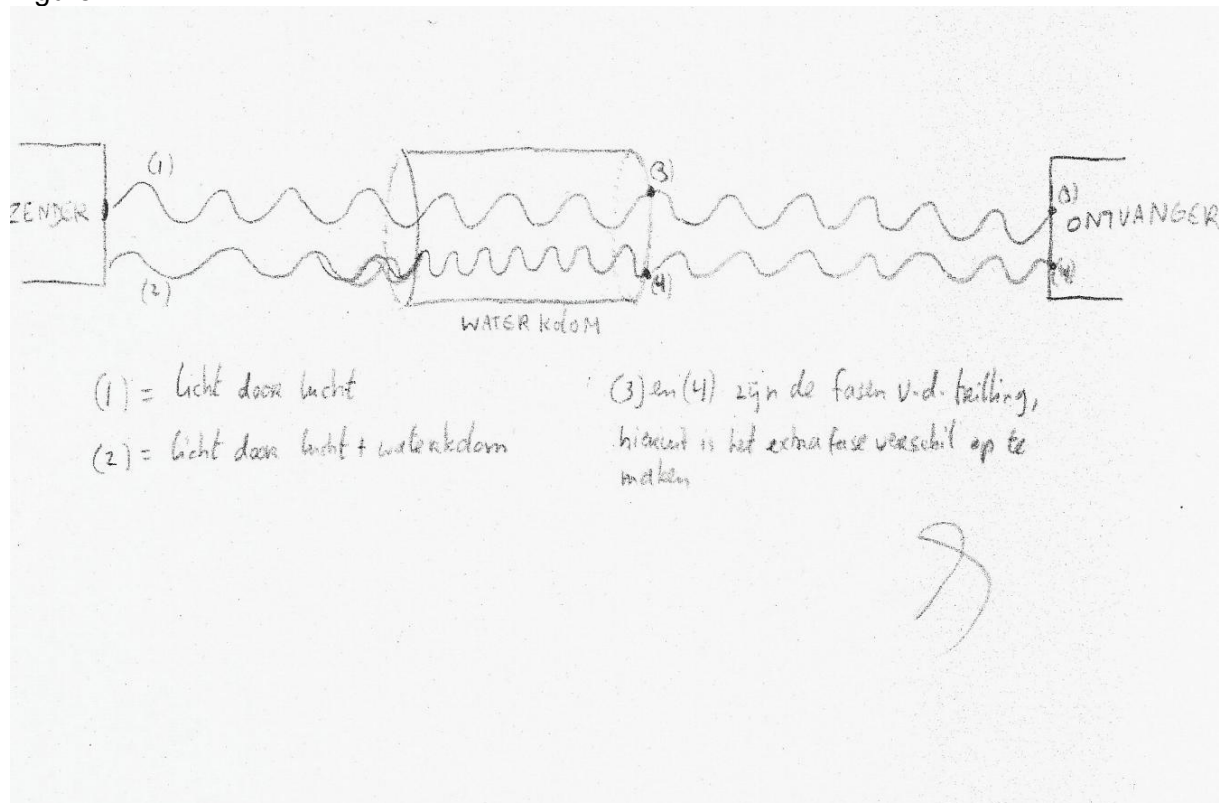 (1)
(3)
ZENDER
(3)
ONTVANGER
(2)
(4)
(4)
WATERKOLOM
(1) = licht door lucht
(2) = licht door lucht + waterkolom
(3) en (4) zijn de fasen v.d. trilling,
hieruit is het extra fase verschil op te
maken